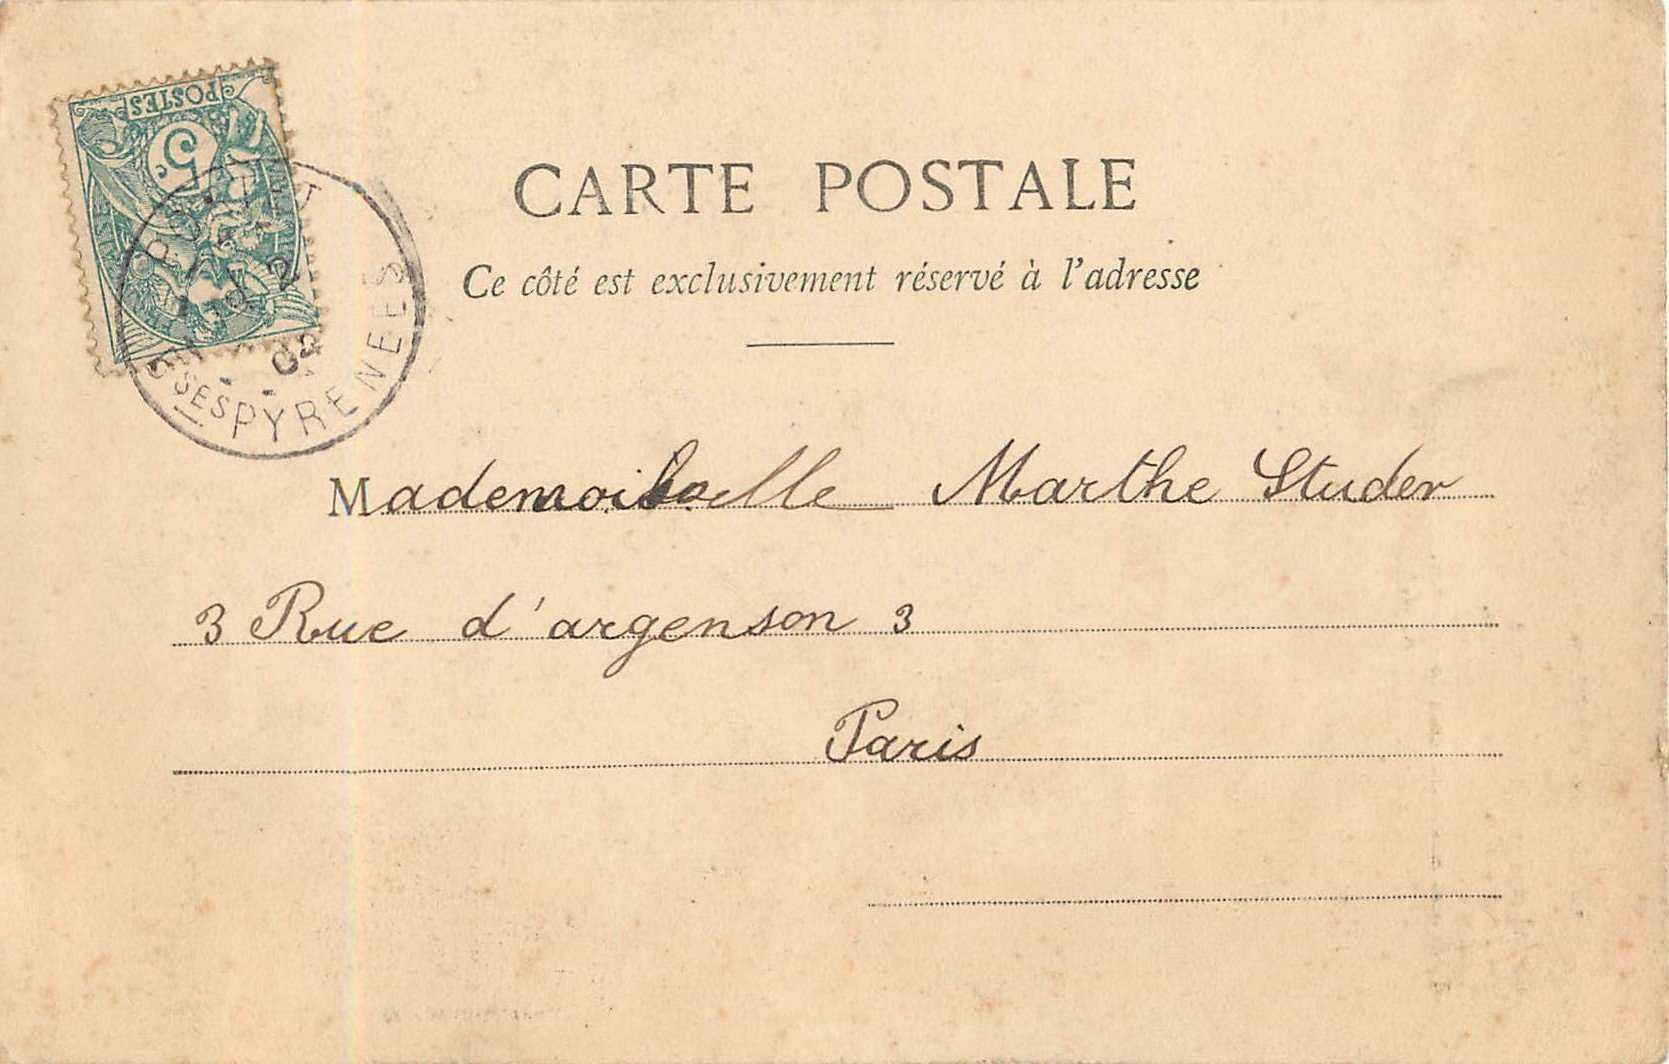 POSTES
5c
CARTE POSTALE
Ce côté est exclusivement réservé à l'adresse
02
SES PYRENEES
Mademoiselle Marthe Studer
3 Rue d'argenson 3
Paris